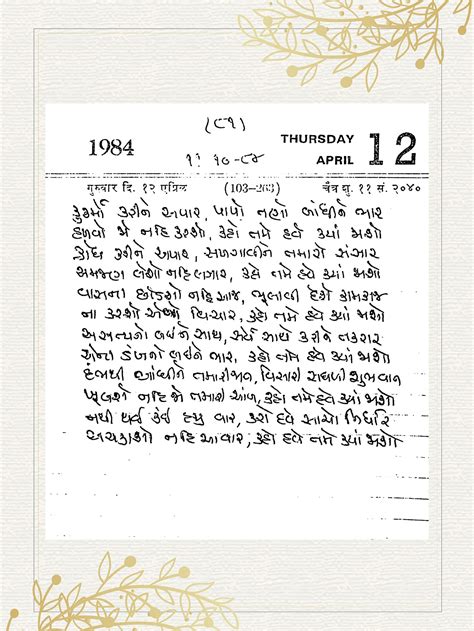 (૮૧)
1984 THURSDAY
APRIL 12
૧૧ ૧૦-૮૪
गुरुवार दि. १२ एप्रिल (103-263) चैत्र शु. ११ सं. २०४०
કુકર્મો કરીને અપાર, પાપો તણો બાંધીને ભાર
હળવો જો નહિ કરશો, કહો તમે હવે ક્યાં જશો
ક્રોધ કરીને અપાર, સળગાવીને તમારો સંસાર
સમજણ લેશો નહિ લગાર, કહો તમે હવે ક્યાં જશો
વાસના છોડશો નહિ આજ, ભુલાવી દેશે કામકાજ
ના કરશો એનો વિચાર, કહો તમે હવે ક્યાં જશો
અસત્યનો લઈને સાથ, સર્વ સાથે કરીને તકરાર
એના ડંખનો લઈને ભાર, કહો તમે હવે ક્યાં જશો
દંભથી બાંધીને તમારી જાત, વિસારી સઘળી શુભ વાત
ખૂલશે નહિ જો તમારી આંખ, કહો તમે હવે ક્યાં જશો
નથી થઈ કંઈ હજુ વાર, કરો હવે સાચો નિર્ધાર
અચકાશો નહિ આવાર, કહો હવે તમે ક્યાં જશો